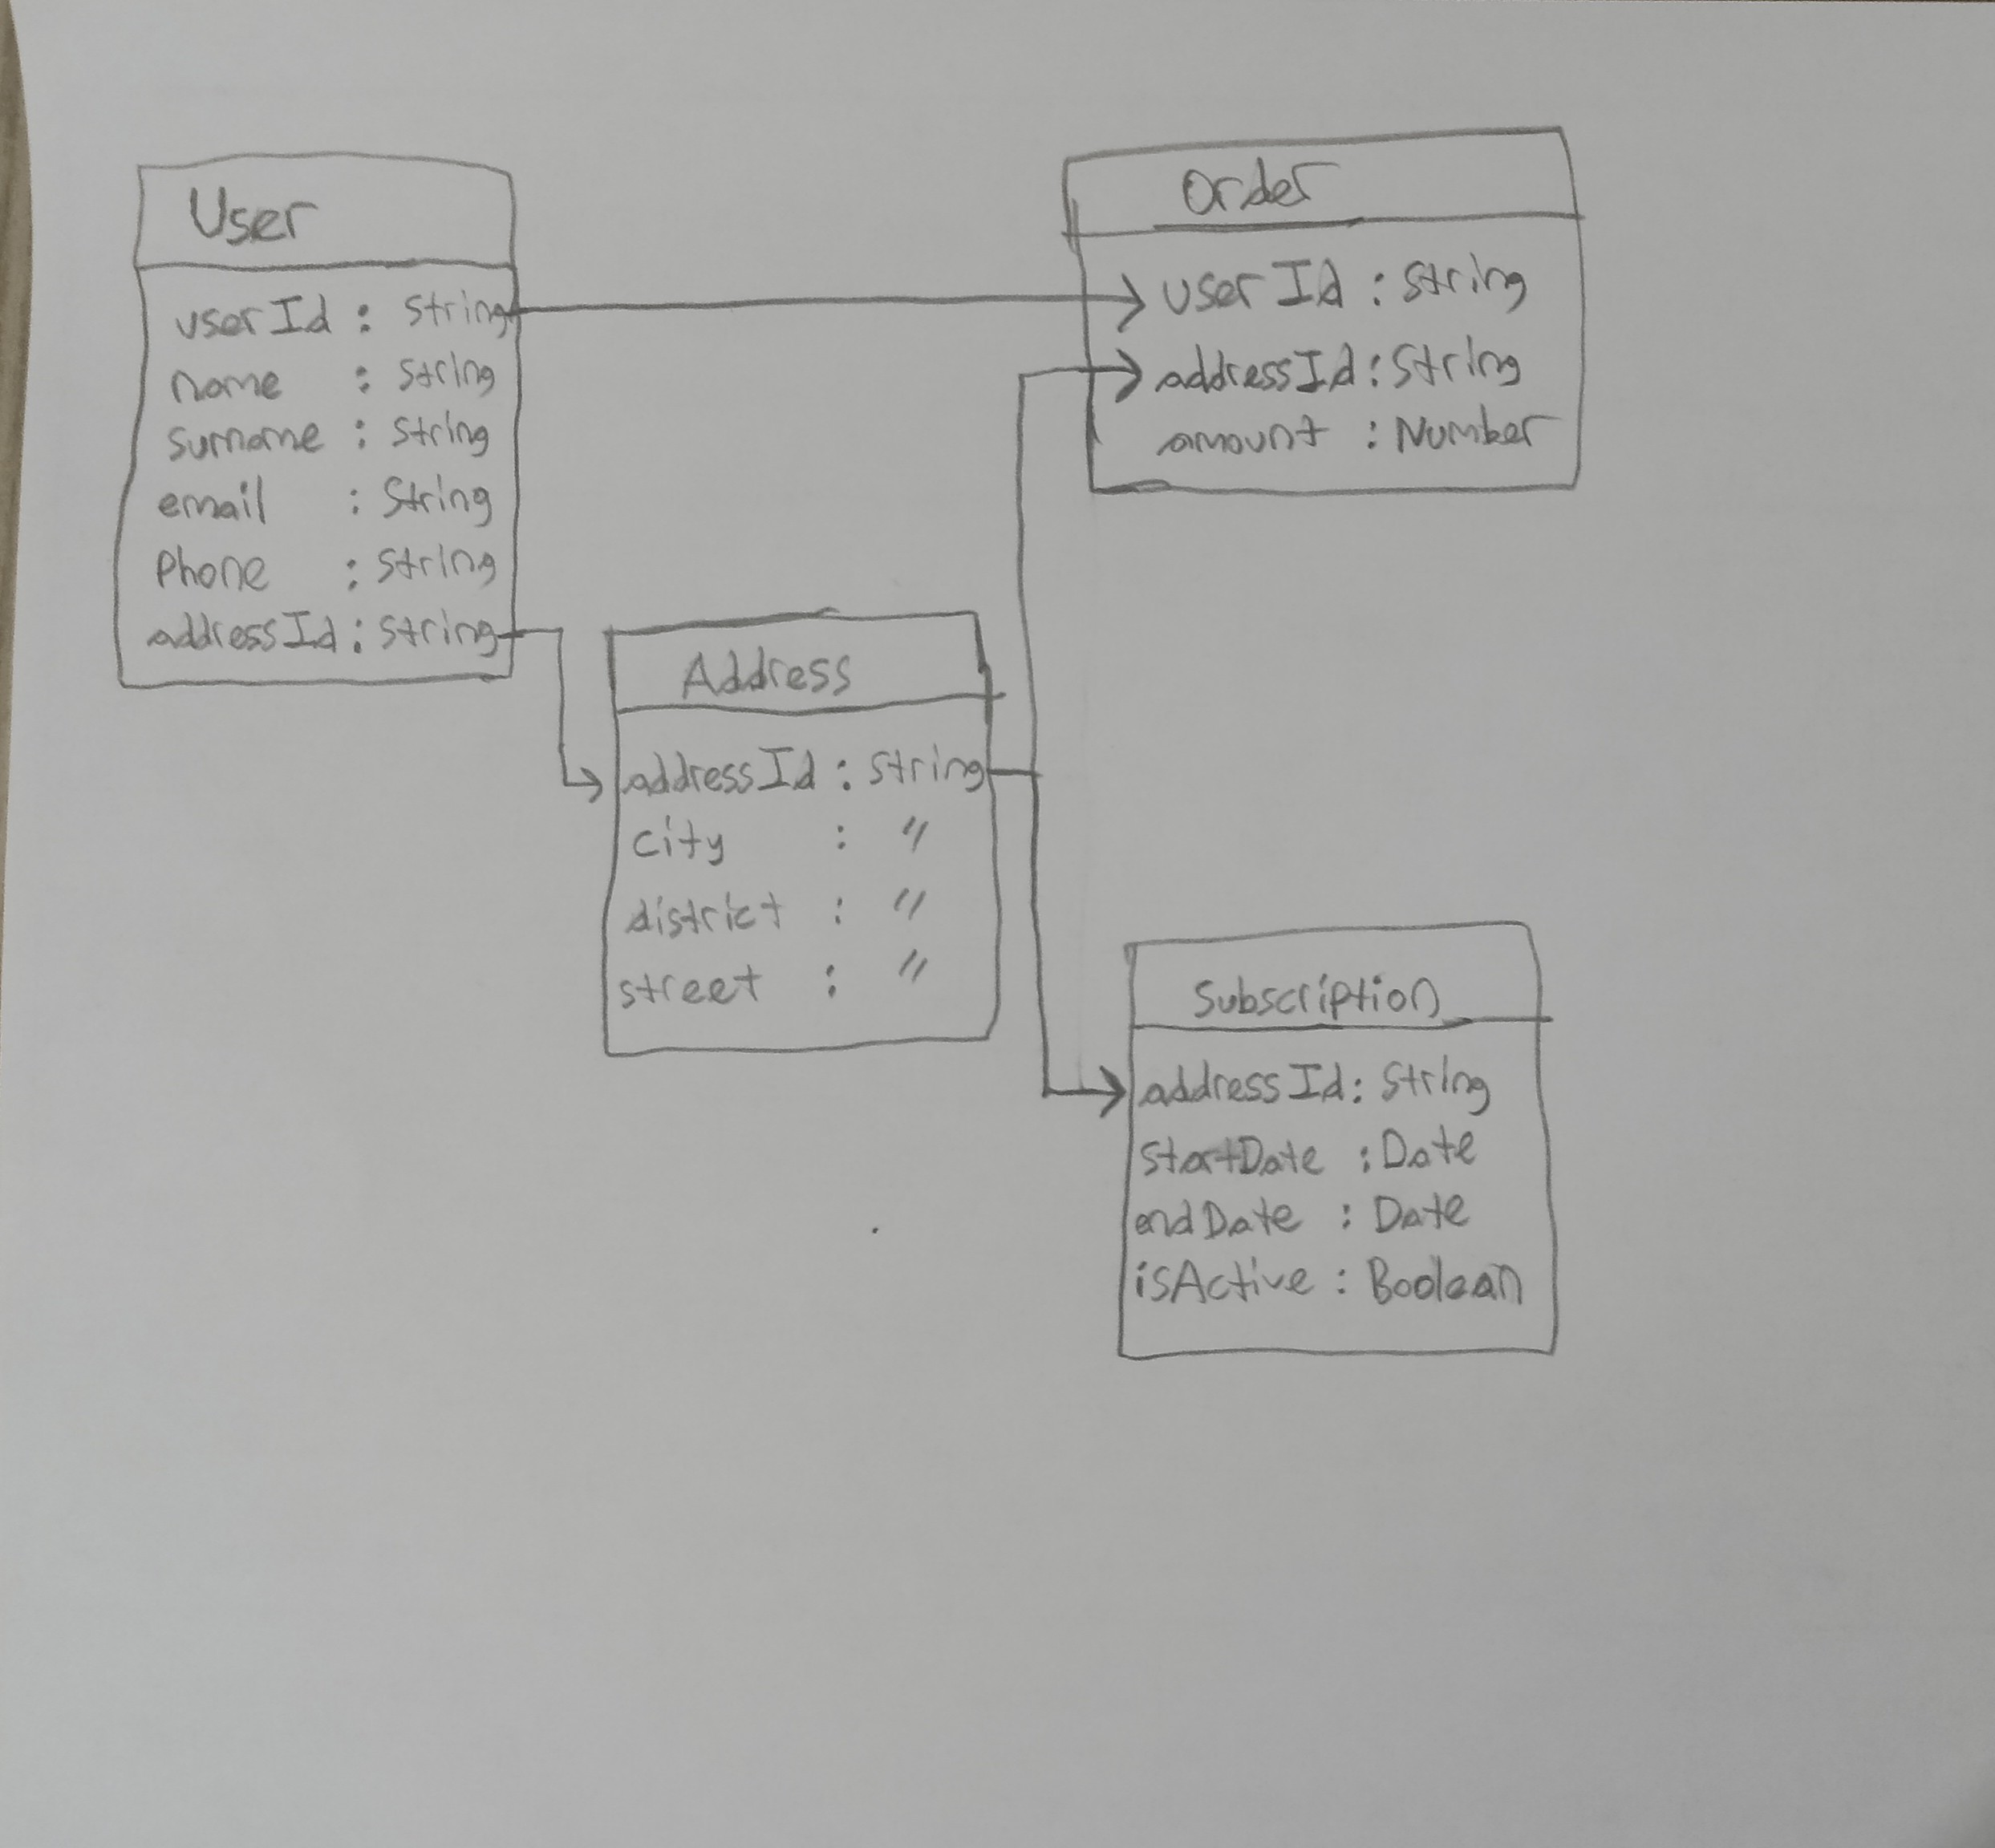 User
userId : String
name : String
surname : String
email : String
Phone : String
addressId : String
Order
userId : String
addressId : String
amount : Number
Address
addressId : String
city : "
district : "
street : "
Subscription
addressId : String
startDate : Date
endDate : Date
isActive : Boolean